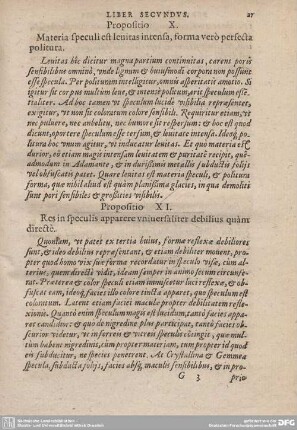 LIBER SECVNDVS. 27
Propositio X.
Materia speculi est leuitas intensa, forma verò perfecta
politura.
Leuitas hîc dicitur magna partium continuitas, carens poris
sensibilibus omninò, vnde lignum & huiusmodi corpora non possunt
esse specula. Per polituram intelligitur, omnis asperitatis amotio. Si
igitur sit corpus multùm leue, & intensè politum, erit speculum
Ad hoc tamen vt speculum lucidè visibilia repræsentet,
exigitur, vt non sit coloratum colore sensibili. Requiritur etiam, vt
nec puluere, nec anhelitu, nec humore sit respersum: & hoc est quod
dicunt, oportere speculum esse tersum, & leuitate intensa.
politura huc vnum agitur, vt inducatur leuitas. Et quò materia est
durior, eò etiam magis intensam leuitatem & puritatem recipit, quẽ-
admodum in Adamante, & in durissimis metallis subductis folijs
Quare leuitas est materia speculi, & politura
forma, quæ nihil aliud est quàm planissima glacies, in qua demoliti
sunt pori sensibiles & grossities visibilis.
Propositio XI.
Res in speculis apparere vniuersaliter debilius quàm
directè.
Quoniam, vt patet ex tertia huius, formæ reflexæ debiliores
sunt, & ideo debilius repræsentant, & etiam debilius mouent, pro-
pter quod homo vix suæ formæ recordatur in speculis visæ, cùm al-
terius, quem directè videt, ideam semper in animo secum circumfe-
rat. Præterea & color speculi etiam immiscetur luci reflexæ, & ob-
fuscat eam, ideoq́; facies illo colore tincta apparet, quo speculum est
coloratum. Latent etiam faciei maculæ propter debilitatem refle-
xionis. Quantò enim speculum magis est lucidum, tantò facies appa-
ret candidior: & quo de nigredine plus participat, tantò facies ob-
scurior videtur, vt in ferreis & vitreis speculis contingit, quæ mul-
tùm habent nigredinis, cùm propter materiam, tum propter id quod
eis subducitur, ne species penetrent. At Crystallina & Gemmea
specula, subductis folijs, facies absq́; maculis sensibilibus, & in pro-
G 3 prio
DFG